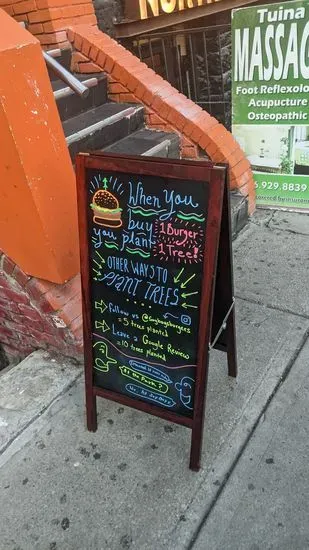 NOR
Tuina
MASSAG
Foot Reflexolo
Acupuncture
Osteopathic
6.929.8839
When You
buy 1 Burger
you plant 1 Tree!
OTHER WAYS TO
PLANT TREES
Follow us
= 5 trees planted
Leave a Google Review
= 10 trees planted